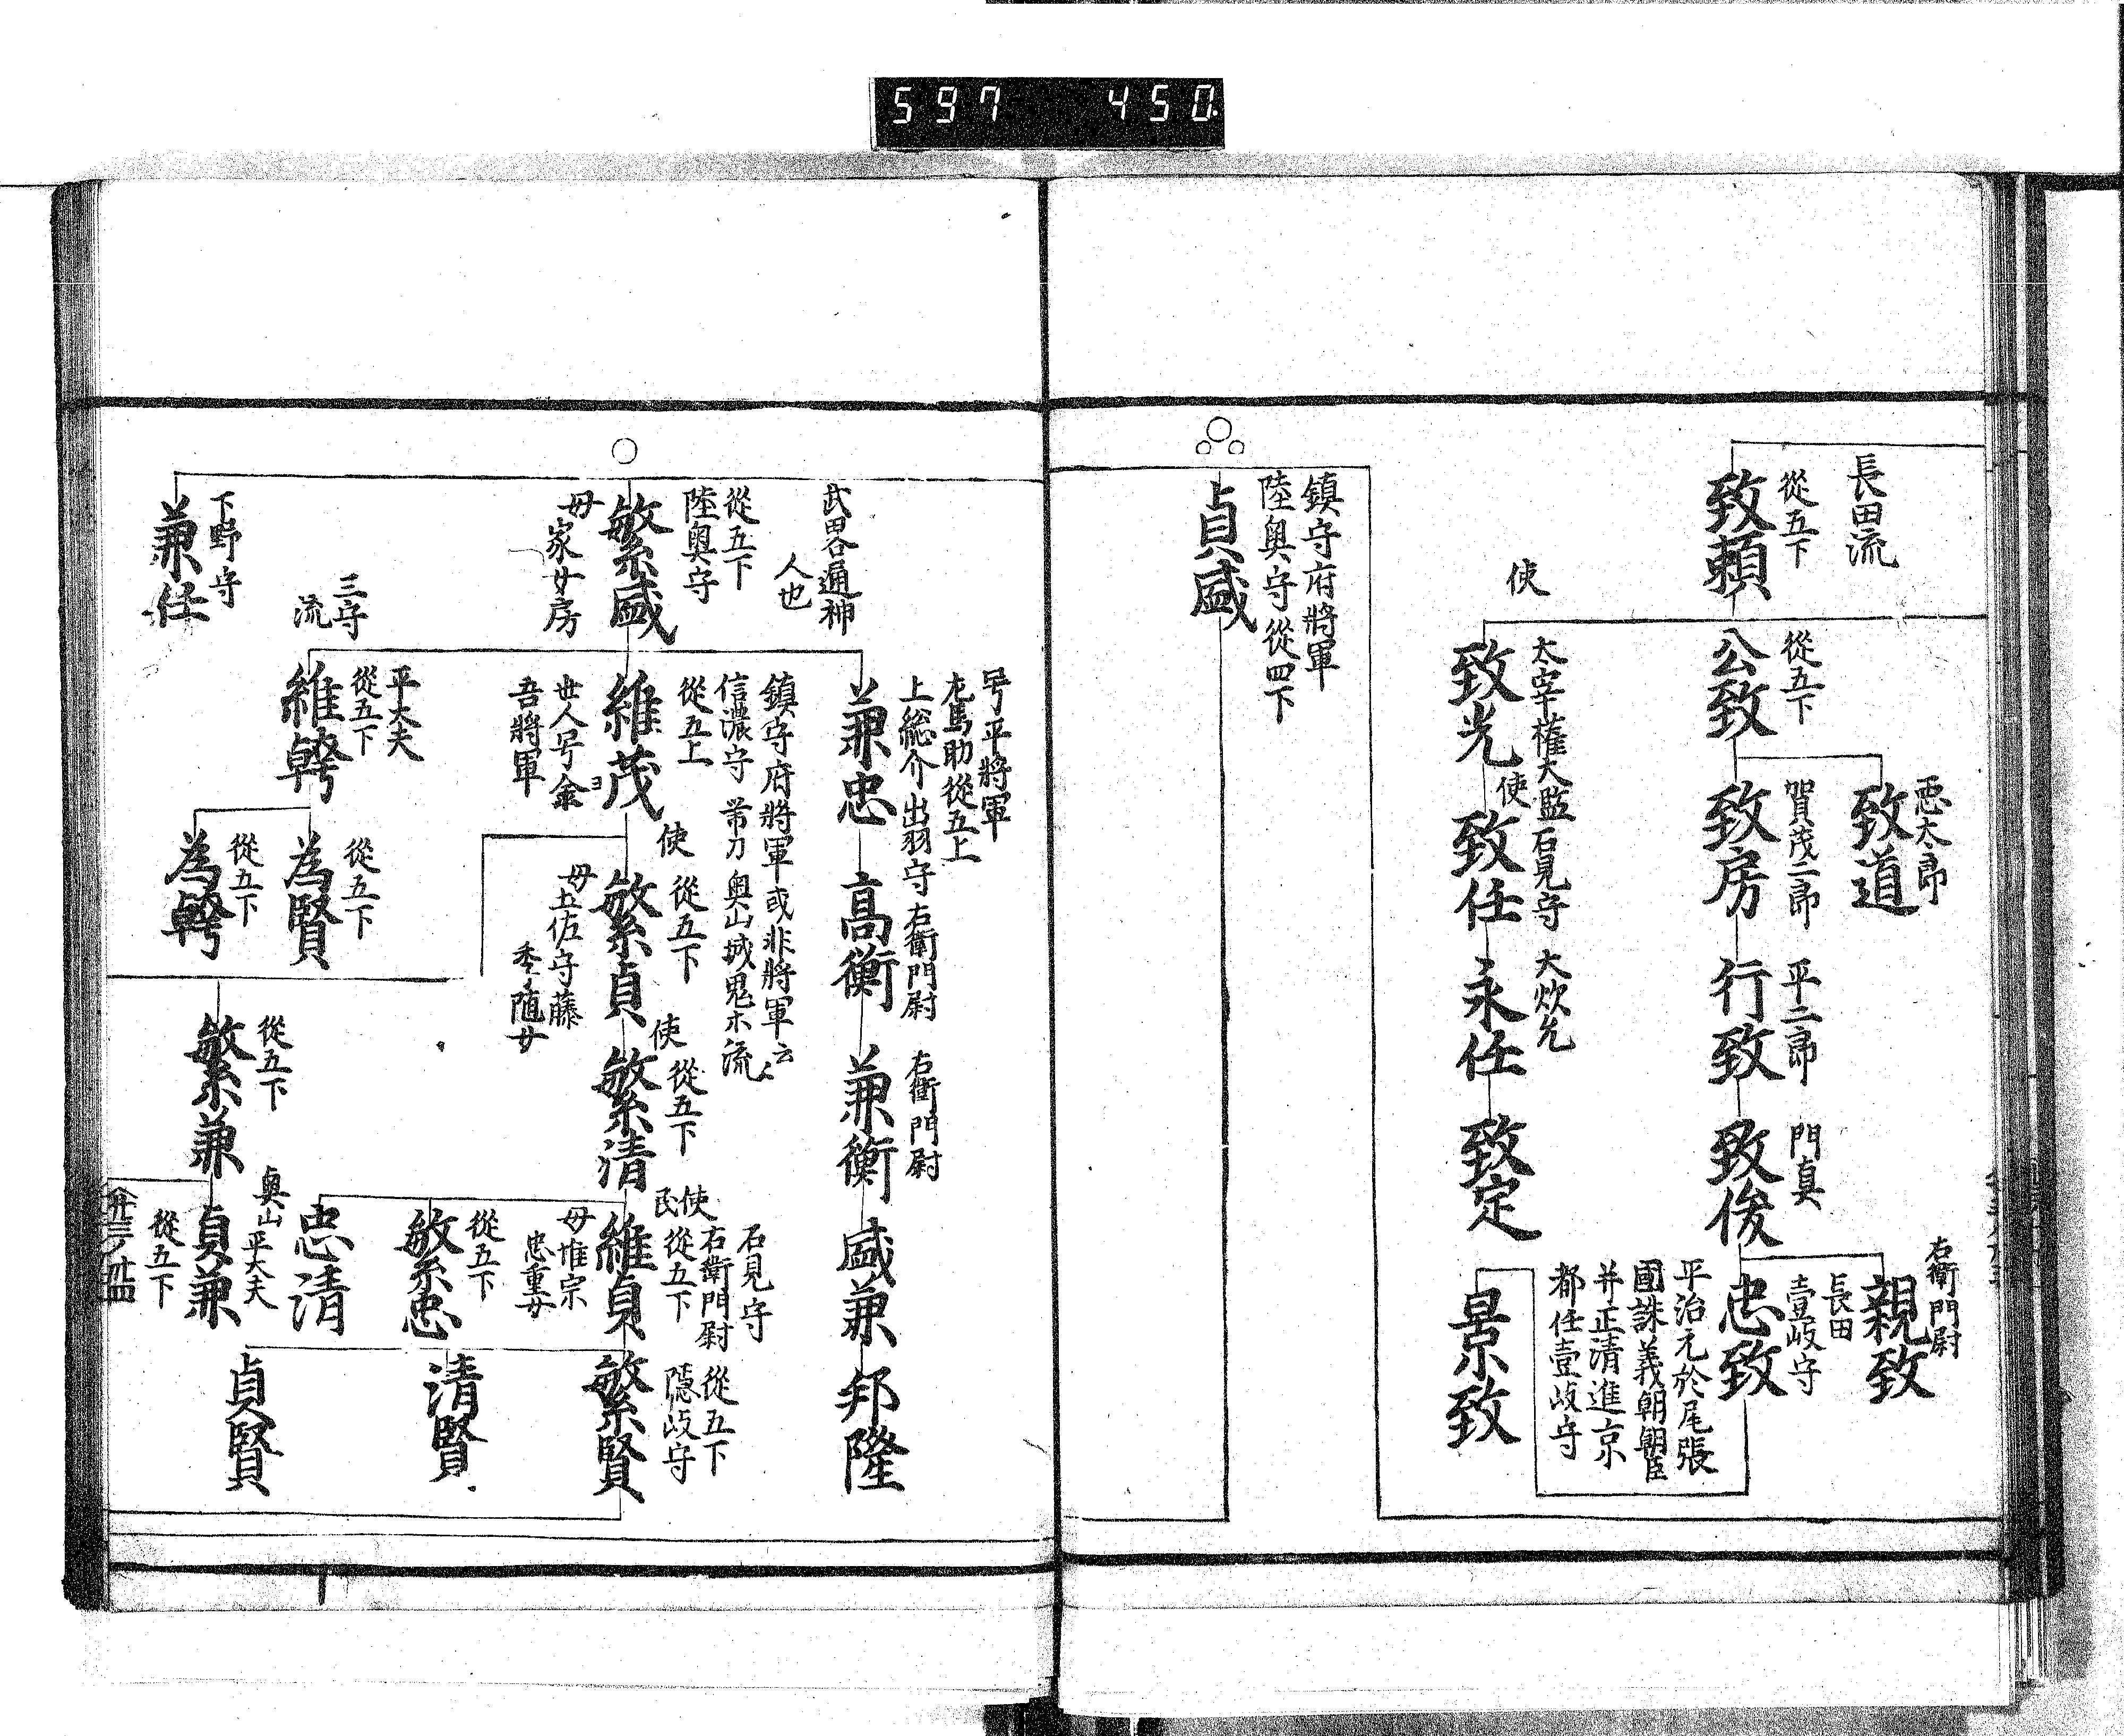 597 450
長田流
從五下
致頼
從五下
公致
悪太郎
致道
賀茂二郎
致房
平二郎
行致
門真
致俊
右衛門尉
親致
長田
壹岐守
忠致
平治元於尾張
國誅義朝朝臣
并正清進京
都任壹岐守
景致
使
太宰權大監石見守
致光
使
致任
大炊允
永任
致定
鎮守府將軍
陸奥守從四下
貞盛
武畧通神
人也
從五下
陸奥守
繁盛
母家女房
下野守
兼任
号平將軍
左馬助從五上
上総介出羽守
兼忠
右衛門尉
高衡
右衛門尉
兼衡
盛兼
邦隆
鎮守府將軍或非將軍云々
信濃守 帯刀 奥山城鬼木流
從五上
維茂
世人号金
ヨ
吾將軍
使
從五下
繁貞
母土佐守藤
季随女
使
從五下
繁清
石見守
使
右衛門尉
民
從五下
維貞
母惟宗
忠重女
從五下
隠岐守
繁賢
從五下
繁忠
清賢
忠清
貞賢
三守
流
平大夫
從五下
維幹
從五下
為賢
從五下
為幹
從五下
繁兼
奥山
平大夫
貞兼
從五下